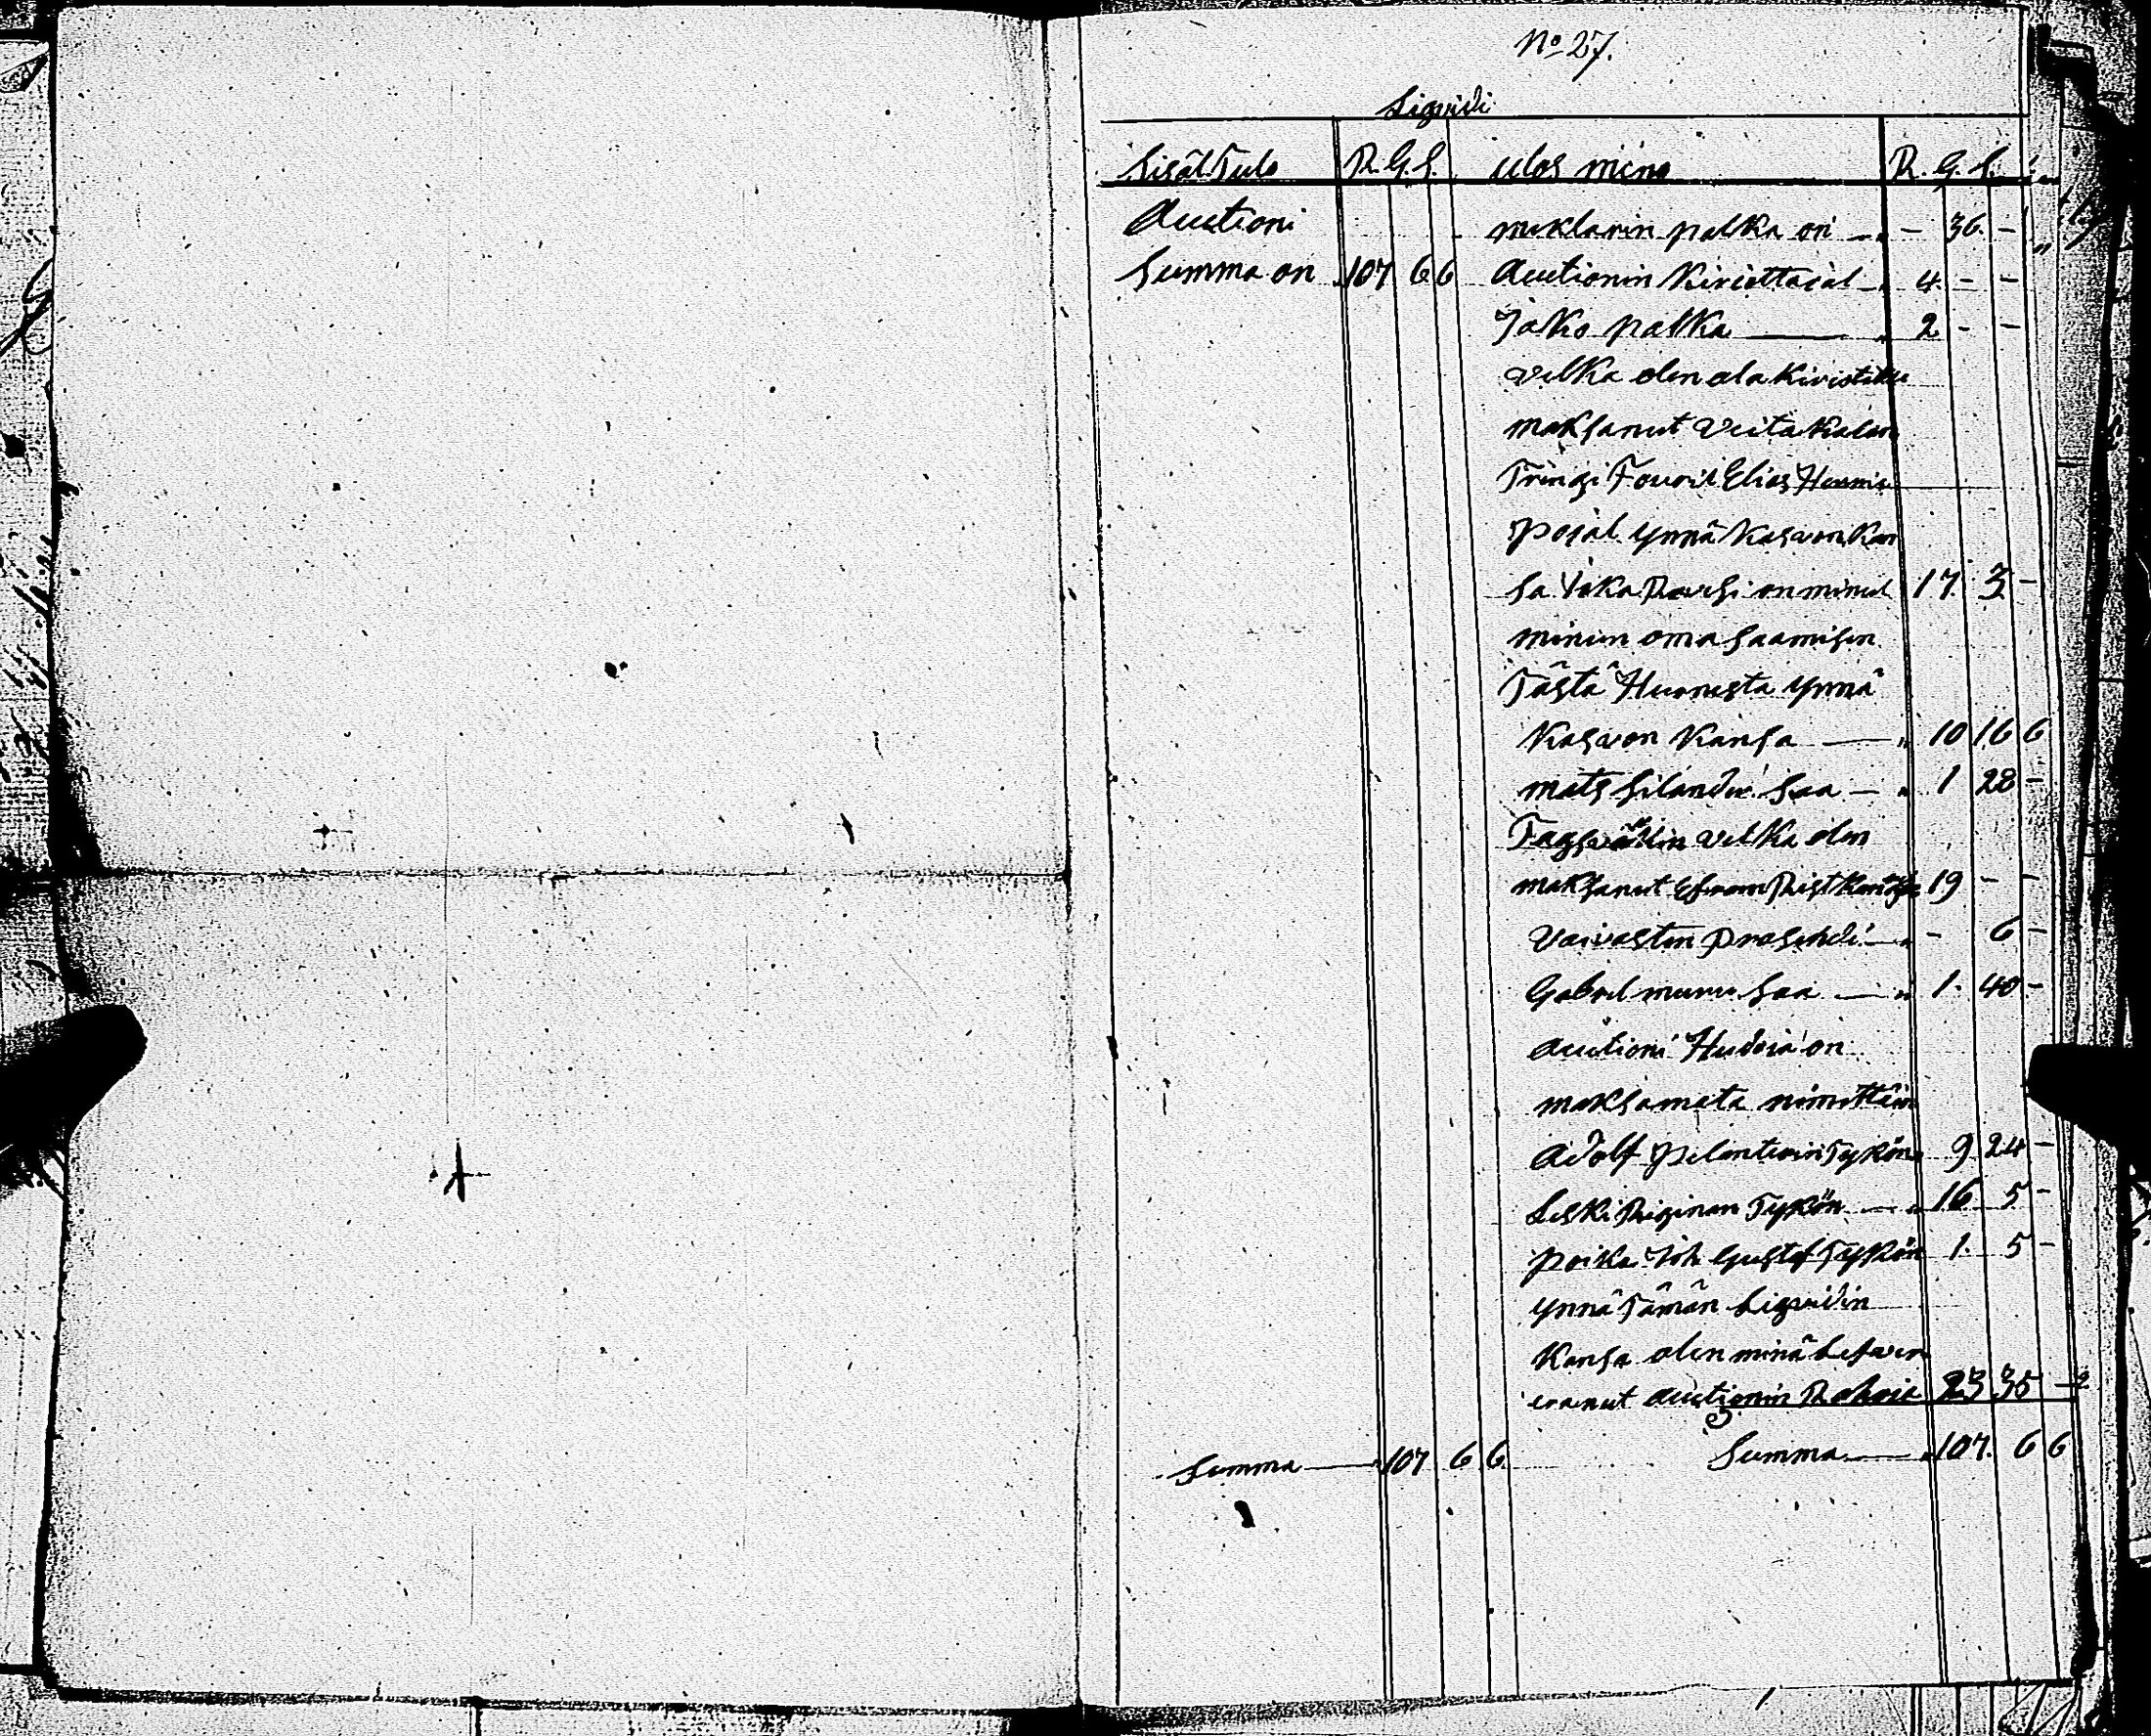 No 27.
Liqvidi
Sisäl Tulo R. G. S. ulos meno R. G. S.
Auctioni meklarin palka on - 36. -
Summa on 107 6 6 Auctionin Kiriottaial 4 - -
Jako palka 2 - -
velka olen ala Kivistiku
maksanut Veitakalan
Tringi Fouvil Elias
pojal ynnä Kasvon Kan
sa joka on minul 17. 3 -
minun oma saamisen
Tästä Huonesta ynnä
Kasvon Kansa 10 16 6
mats Silander saa 1 28 -
velka olen
maksanut 19 - -
Vaivasten prosendi - 6 -
Gabrel saa 1. 40 -
Auctioni Hudoia on
maksamata nimittäin
Adolf Tykön 9 24 -
Leski Reginan Tykön 16 5 -
poika Joh Gustaf Tykön 1. 5 -
ynnä Tämän Liqvidin
Kansa olen minä
auctionin Rahoia 23 35 -
Summa 107 6 6 Summa 107. 6 6